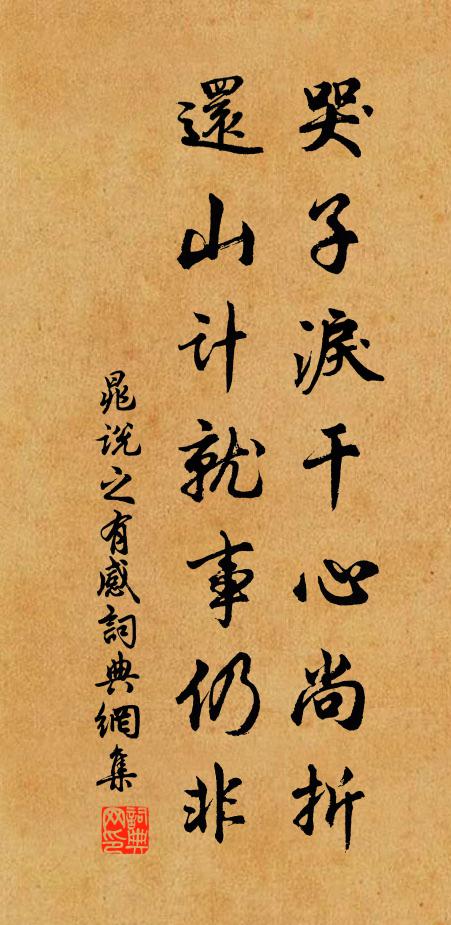 哭子淚干心尚折
還山计就事仍非
晁说之有感詞典網集
詞典网印